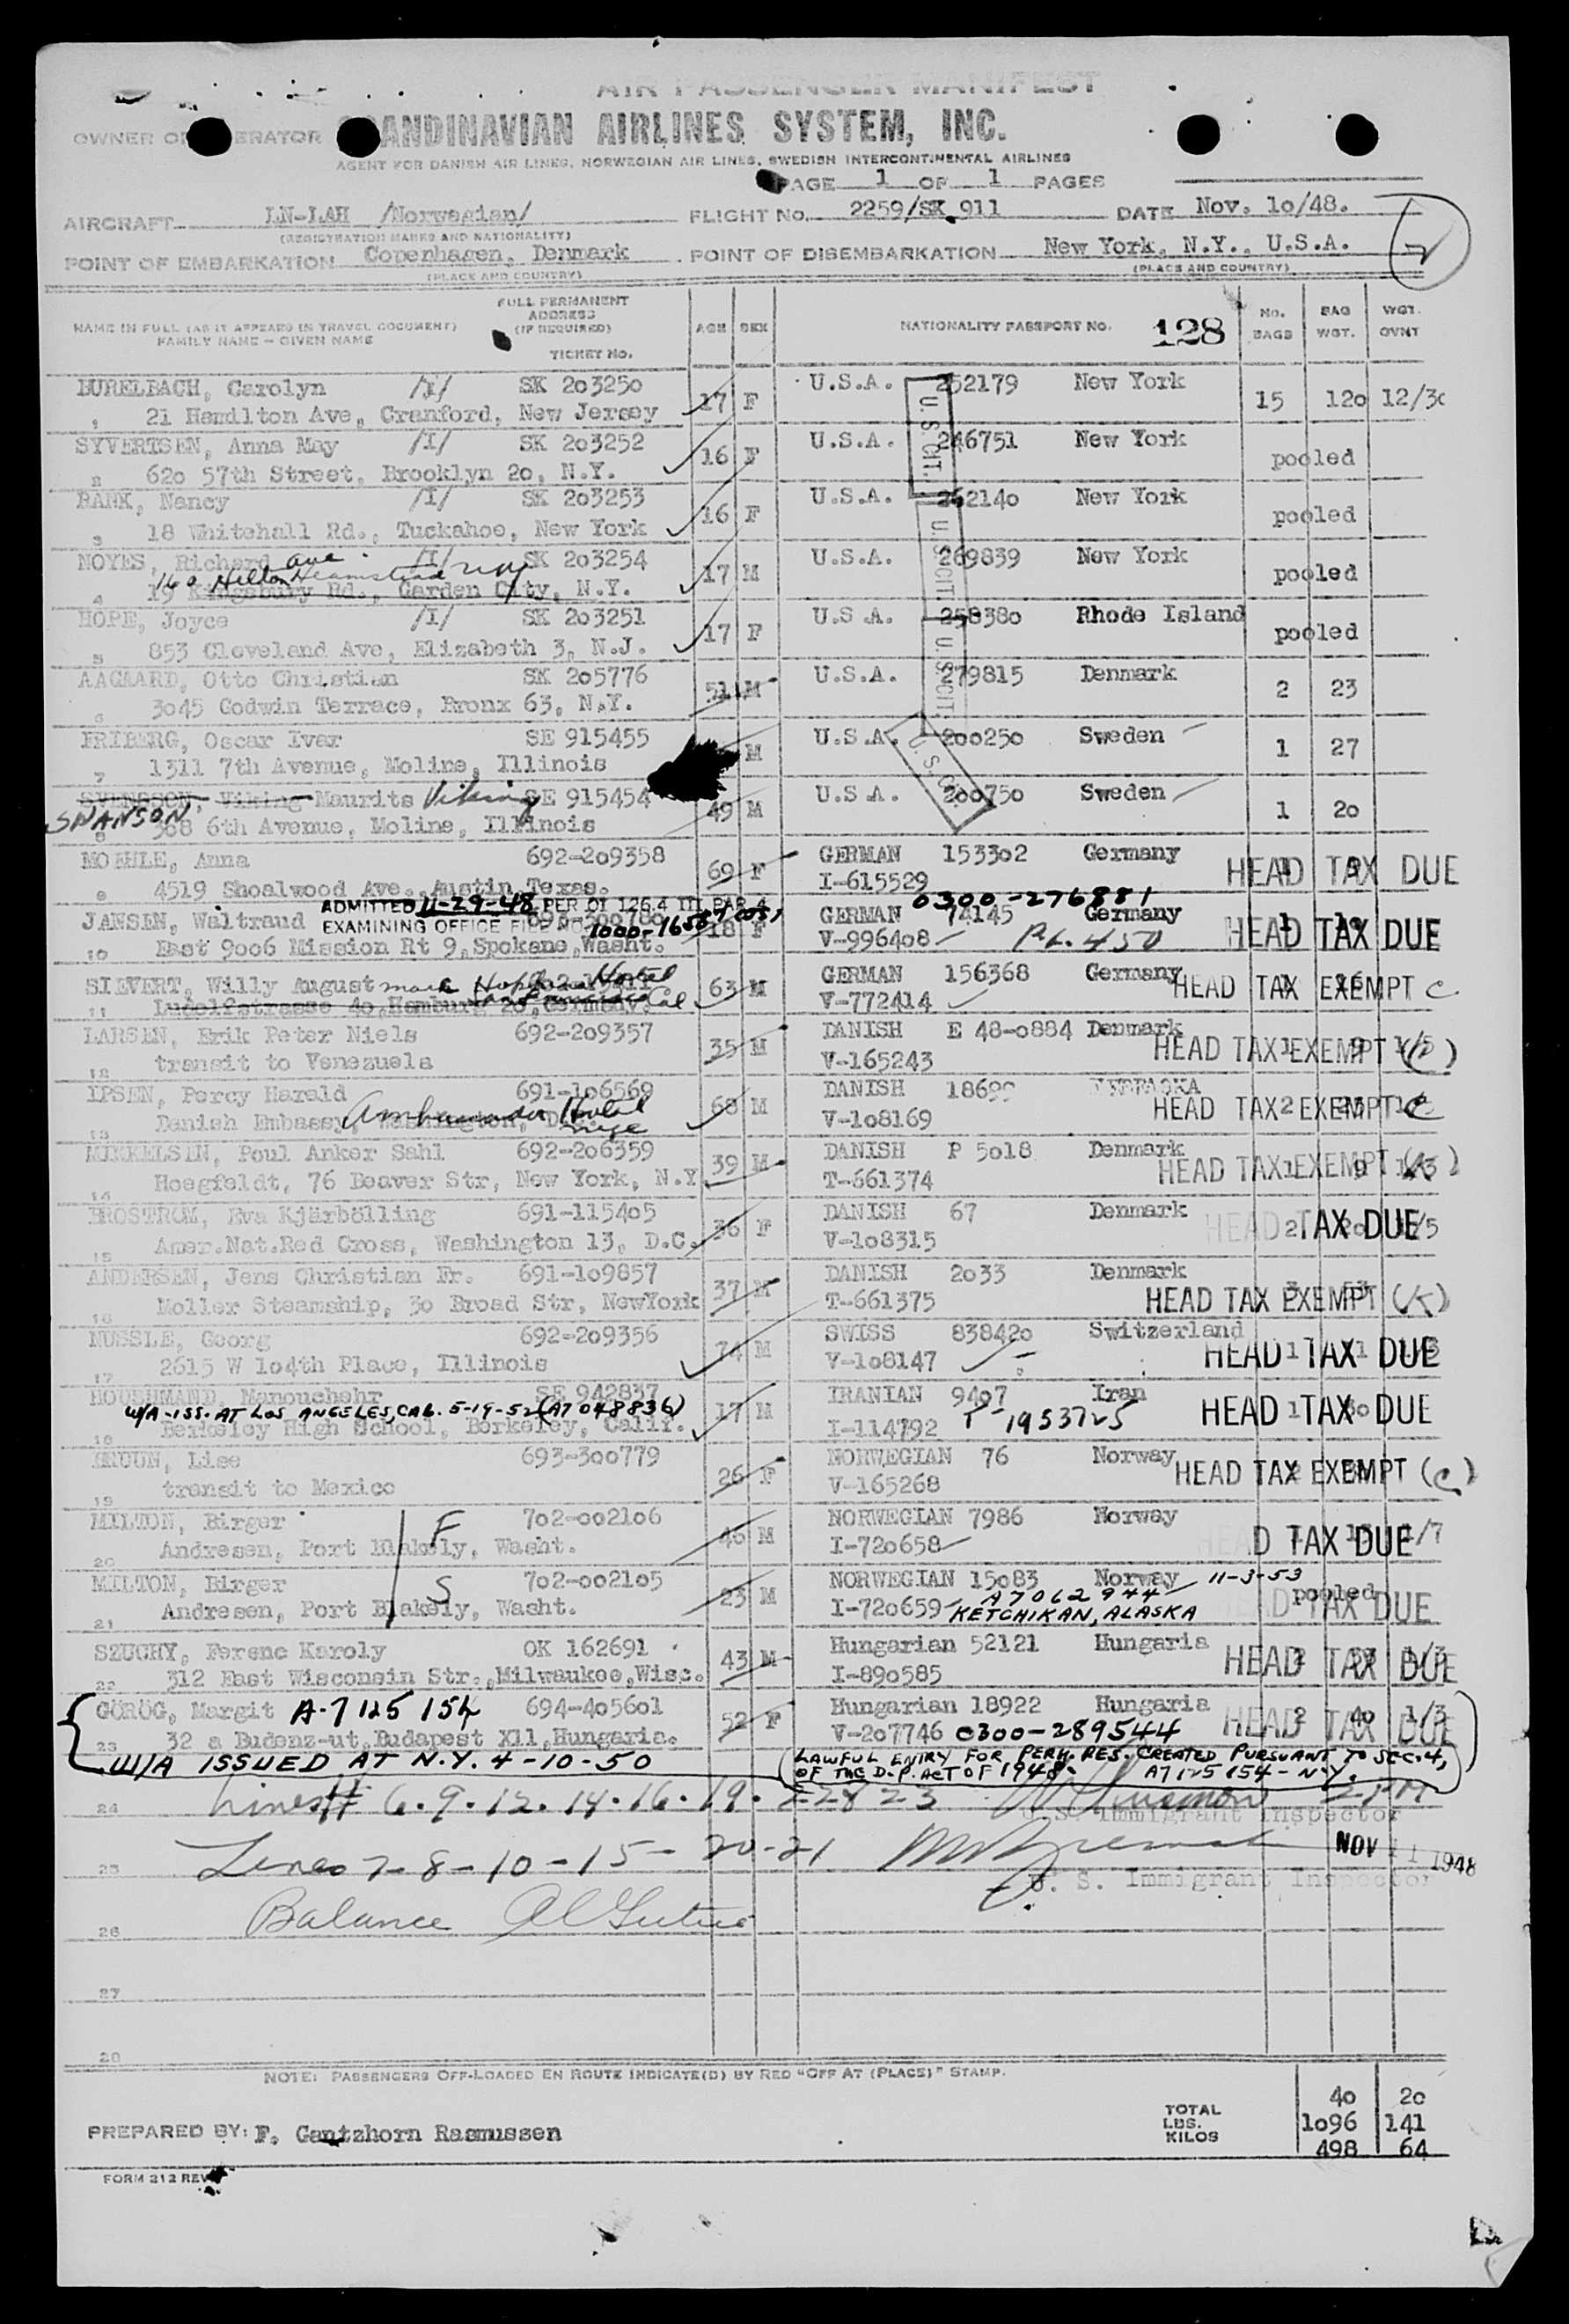 AIR PASSENGER MANIFEST
OWNER OR OPERATOR SCANDINAVIAN AIRLINES SYSTEM, INC.
AGENT FOR DANISH AIR LINES, NORWEGIAN AIR LINES, SWEDISH INTERCONTINENTAL AIRLINES
PAGE 1 OF 1 PAGES
AIRCRAFT LN-LAH /Norwegian/ FLIGHT No. 2259/SK 911 DATE Nov. 1o/48.
(REGISTRATION MARKS AND NATIONALITY)
POINT OF EMBARKATION Copenhagen, Denmark POINT OF DISEMBARKATION New York, N.Y., U.S.A.
(PLACE AND COUNTRY) (PLACE AND COUNTRY)
NAME IN FULL (AS IT APPEARS IN TRAVEL DOCUMENT) FAMILY NAME - GIVEN NAME FULL PERMANENT ADDRESS (IF REQUIRED) TICKET No. AGE SEX NATIONALITY PASSPORT NO. 128 No. BAGS BAG WGT. WGT. OVNT
BURELBACH, Carolyn /I/ SK 2o325o 17 F U.S.A. 252179 New York 15 12o 12/3o
21 Hamilton Ave, Cranford, New Jersey
SYVERTSEN, Anna May /I/ SK 2o3252 16 F U.S.A. 246751 New York pooled
2 62o 57th Street, Brooklyn 2o, N.Y.
RANK, Nancy /I/ SK 2o3253 16 F U.S.A. 26214o New York pooled
3 18 Whitehall Rd., Tuckahoe, New York
NOYES, Richard /I/ SK 2o3254 17 M U.S.A. 269839 New York pooled
160 Hilton Ave Heampstead N.Y.
4 19 Kingsbury Rd., Garden City, N.Y.
HOPE, Joyce /I/ SK 2o3251 17 F U.S.A. 25838o Rhode Island pooled
5 853 Cleveland Ave, Elizabeth 3, N.J.
AAGAARD, Otto Christian SK 2o5776 51 M U.S.A. 279815 Denmark 2 23
6 3o45 Godwin Terrace, Bronx 63, N.Y.
FRIBERG, Oscar Ivar SE 915455 M U.S.A. 2oo25o Sweden 1 27
7 1311 7th Avenue, Moline, Illinois
U.S. CIT. U.S. CIT. U.S. CIT. U.S. CIT.
SVENGSON, Viking Maurits Viking SE 915454 49 M U.S.A. 2oo75o Sweden 1 2o
SWANSON
8 368 6th Avenue, Moline, Illinois
MOEHLE, Anna 692-2o9358 69 F GERMAN 1533o2 Germany HEAD TAX DUE
9 4519 Shoalwood Ave., Austin, Texas. I-615529
ADMITTED 11-29-48 PER OI 126.4 III PAR 4 0300-276881
JANSEN, Waltraud 18 F GERMAN 74145 Germany HEAD TAX DUE
EXAMINING OFFICE FILE NO.
10 East 9oo6 Mission Rt 9, Spokane, Washt. V-9964o8
SIEVERT, Willy August Mark Hopkins Hotel San Francisco Cal 63 M GERMAN 156368 Germany HEAD TAX EXEMPT C
11 Ludolfstrasse 4o, Hamburg 2o, Germany. V-772414
LARSEN, Erik Peter Niels 692-2o9357 35 M DANISH E 48-o884 Denmark HEAD TAX EXEMPT
12 transit to Venezuela V-165243
IPSEN, Percy Harald 691-1o6569 68 M DANISH HEAD TAX EXEMPT C
13 Danish Embassy, Washington, D.C. Ambassador Hotel V-1o8169
MIKKELSEN, Poul Anker Sahl 692-2o6359 39 M DANISH P 5o18 Denmark HEAD TAX EXEMPT
14 Hoegfeldt, 76 Beaver Str, New York, N.Y T-661374
BROSTRÖM, Eva Kjärbölling 691-1154o5 36 F DANISH 67 Denmark HEAD TAX DUE
15 Amer.Nat.Red Cross, Washington 13, D.C. V-1o8315
ANDERSEN, Jens Christian Fr. 691-1o9857 37 M DANISH 2o33 Denmark HEAD TAX EXEMPT (K)
16 Moller Steamship, 3o Broad Str, NewYork T-661375
NUSSLE, Georg 692-2o9356 74 M SWISS 83842o Switzerland HEAD TAX DUE
17 2615 W 1o4th Place, Illinois V-1o8147
HOUSHMAND, Manouchehr SE 942837 17 M IRANIAN 94o7 Iran HEAD TAX DUE
W/A-ISS. AT LOS ANGELES, CAL. 5-19-52 (A7 048836)
18 Berkeley High School, Berkeley, Calif. I-114792
KNUDN, Lise 693-3oo779 26 F NORWEGIAN 76 Norway HEAD TAX EXEMPT (C)
19 transit to Mexico V-165268
MILTON, Birger F 7o2-oo21o6 46 M NORWEGIAN 7986 Norway HEAD TAX DUE
20 Andresen, Port Blakely, Washt. I-72o658
MILTON, Birger S 7o2-oo21o5 23 M NORWEGIAN 15o83 Norway 11-3-53 pooled
A7062944 KETCHIKAN, ALASKA
21 Andresen, Port Blakely, Washt. I-72o659 HEAD TAX DUE
SZUCHY, Ferenc Karoly OK 162691 43 M Hungarian 52121 Hungaria HEAD TAX DUE
22 312 East Wisconsin Str., Milwaukee, Wisc. I-89o585
GÖRÖG, Margit A-7125154 694-4o56o1 52 F Hungarian 18922 Hungaria 2 4o 1/3 HEAD TAX DUE
23 32 a Budenz-ut, Budapest X11, Hungaria. V-2o7746 0300-289544
W/A ISSUED AT N.Y. 4-10-50 LAWFUL ENTRY FOR PERM. RES. CREATED PURSUANT TO SEC.4,
OF THE D.P. ACT OF 1948. A7125154-N.Y.
24 Lines# 6.9.12.14.16.19.22 & 23
U.S. Immigrant Inspector
25 Lines 7-8-10-15-20-21 NOV 11 1948
U. S. Immigrant Inspector
26 Balance
27
28
NOTE: PASSENGERS OFF-LOADED EN ROUTE INDICATE(D) BY RED "OFF AT (PLACE)" STAMP.
TOTAL 4o 2o
PREPARED BY: F. Gantzhorn Rasmussen LBS. 1o96 141
KILOS 498 64
FORM 212 REV